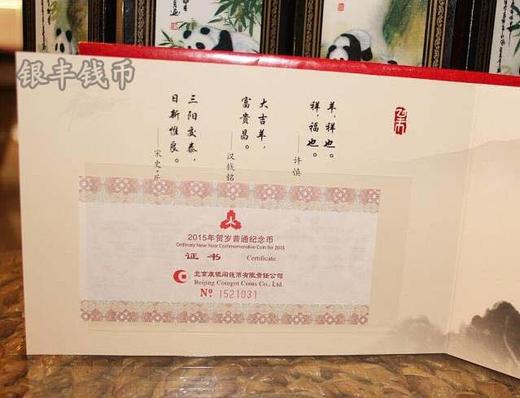 银丰钱币
羊，祥也。
祥，福也。
——许慎
大吉羊，
富贵昌。
——汉钱铭
三阳交泰，
日新惟良。
——宋史·乐
2015年贺岁普通纪念币
Ordinary New Year Commemorative Coin for 2015
证书
Certificate
北京康银阁钱币有限责任公司
Beijing Coingot Coins Co., Ltd.
№ 1521031